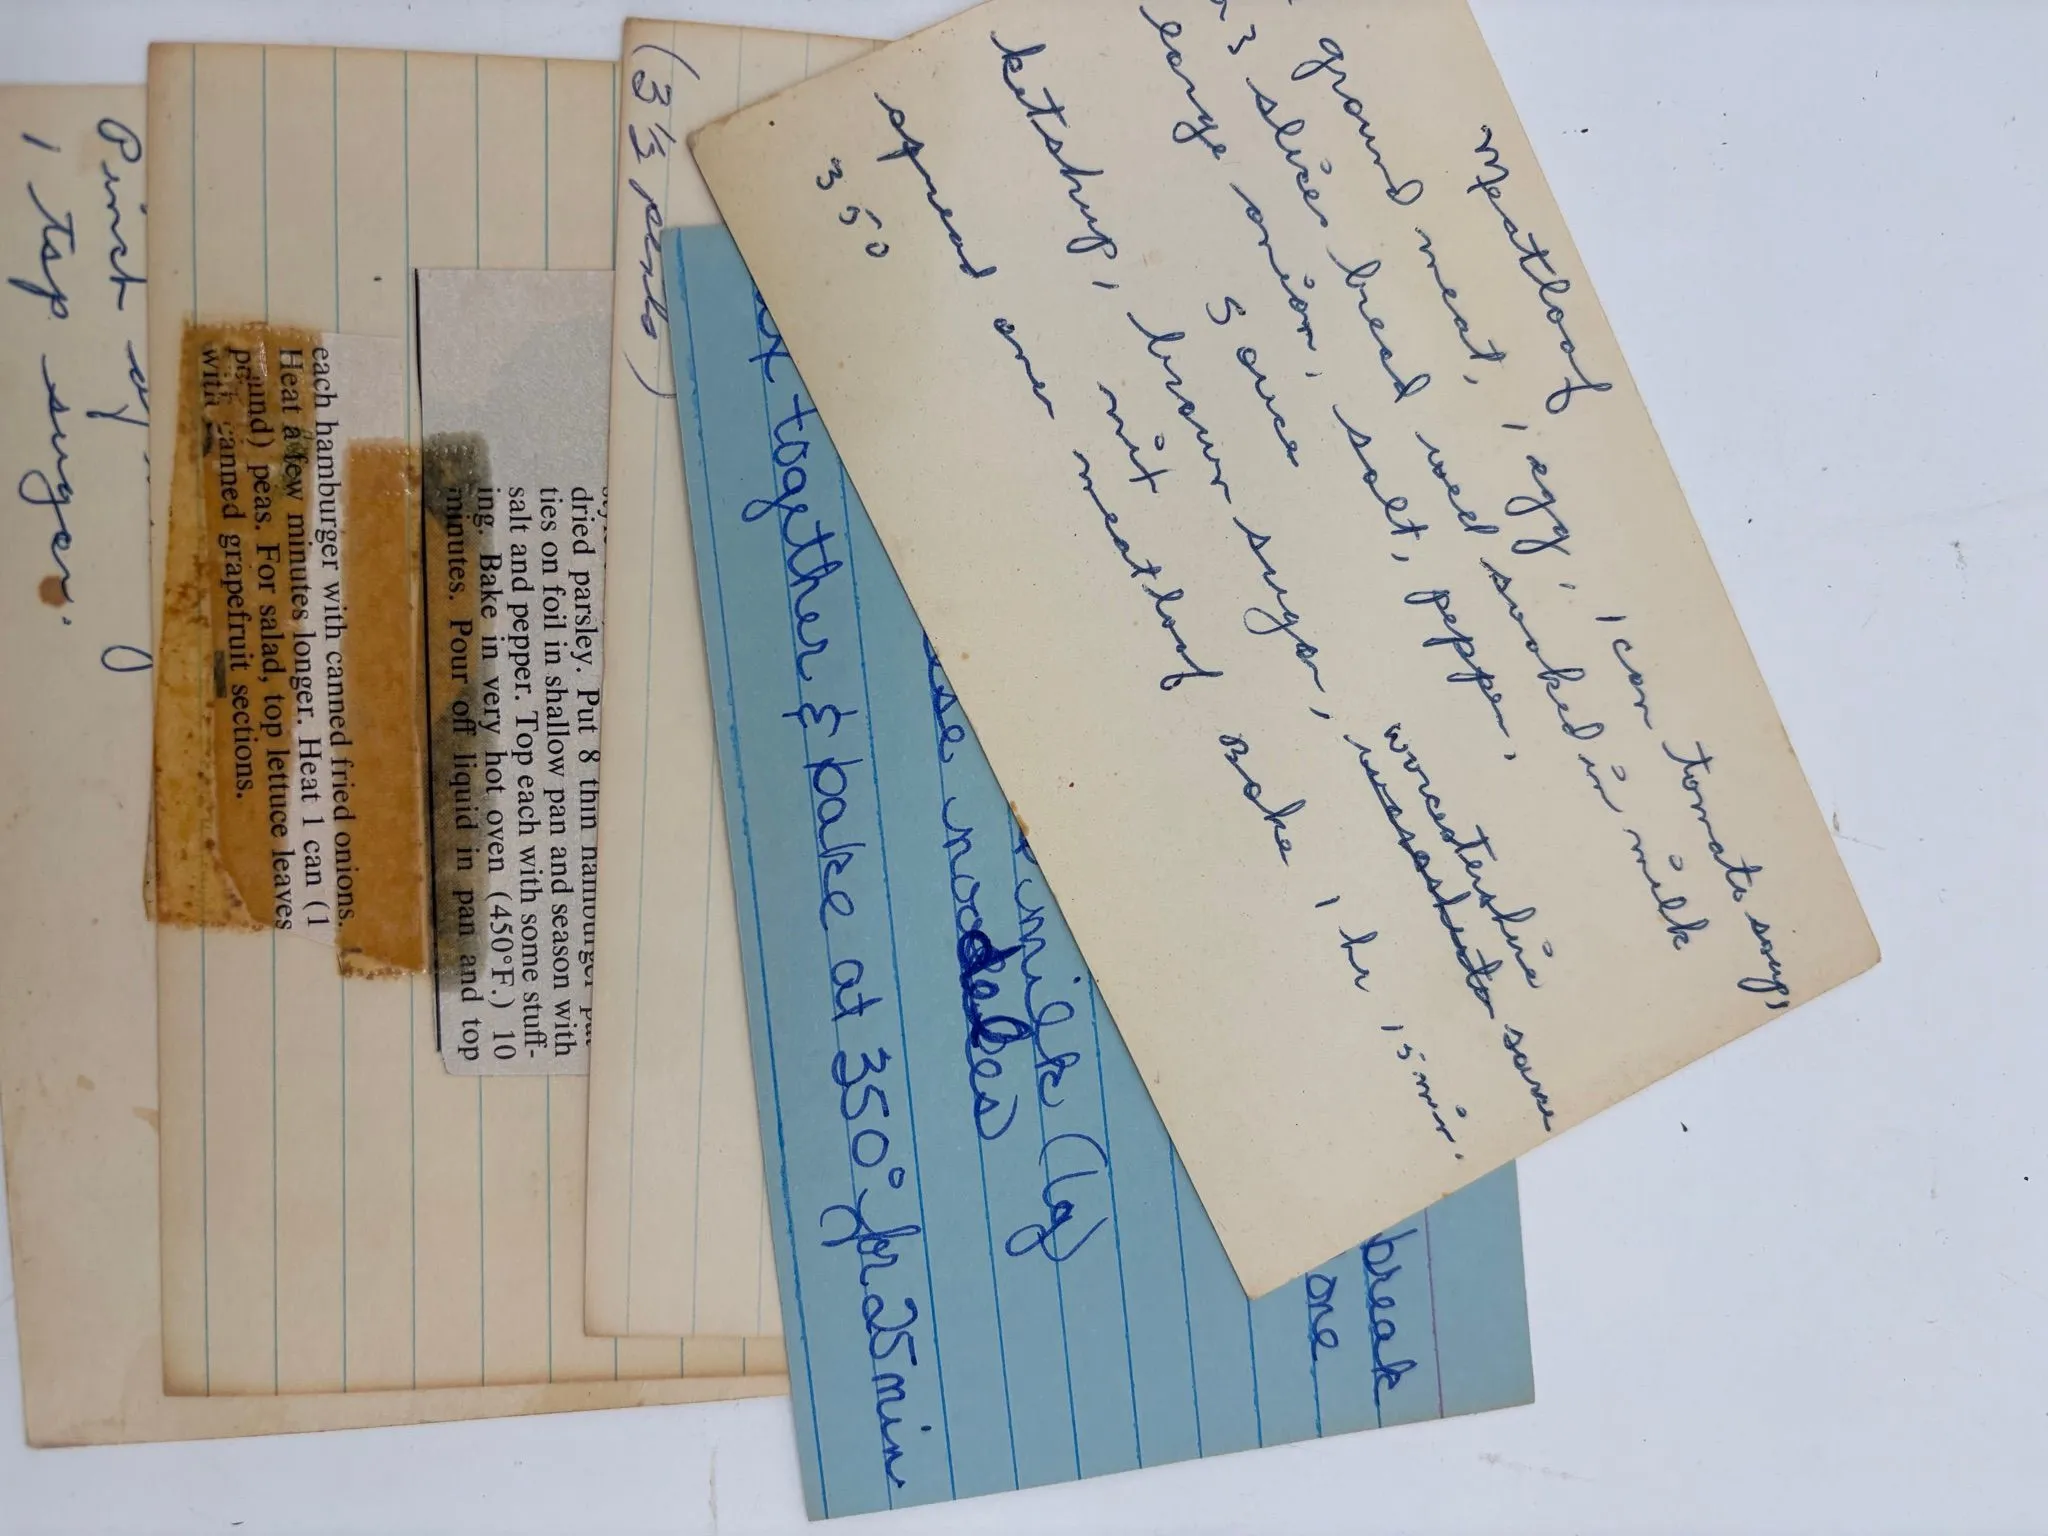 Meatloaf
ground meat, 1 egg, 1 can tomato soup,
3 slices bread well soaked in milk
large onion, salt, pepper,
Sauce
worcestershire
ketshup, brown sugar, sauce
mix
spread over meatloaf Bake 1 hr 15 min.
350
break
one
milk (lg)
use noodles
together & bake at 350° for 25 min
(3 1/3 cents)
dried parsley. Put 8 thin hamburger
ties on foil in shallow pan and season with
salt and pepper. Top each with some stuff-
ing. Bake in very hot oven (450°F.) 10
minutes. Pour off liquid in pan and top
each hamburger with canned fried onions.
Heat a few minutes longer. Heat 1 can (1
pound) peas. For salad, top lettuce leaves
with canned grapefruit sections.
Pinch of
1 tsp sugar.